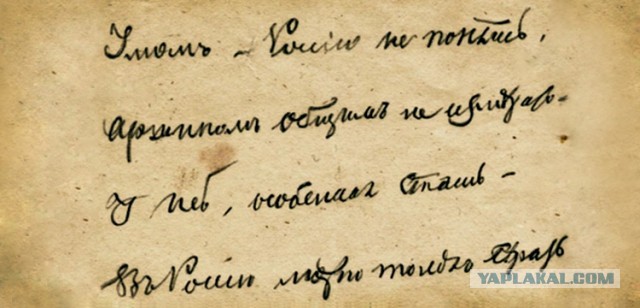 Умомъ – Россiю не понять,
Аршиномъ общимъ не измѣрить –
У ней, особенная стать –
Въ Россiю можно только
YAPLAKAL.COM